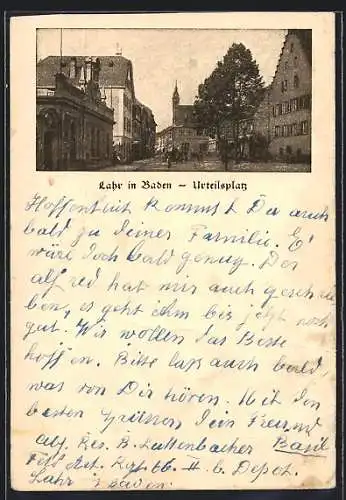 Lahr in Baden — Urteilsplatz
Hoffentlich kommst Du auch
bald zu deiner Familie. Es
wäre doch bald genug. Der
alfred hat mir auch geschrie
ben, es geht ihm bis jetzt noch
gut. Wir wollen das Beste
hoffen. Bitte laß auch bald
was von Dir hören. Mit den
besten Grüssen dein Freund
Abs. Res. B. Luttenbacher Basil
Feld Art. Rgt. 66. II b. Depot.
Lahr Baden.